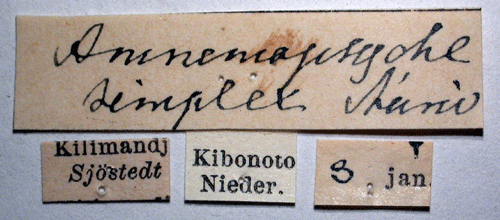 Ammemopsyche
simplex Navás
Kilimandj
Sjöstedt
Kibonoto
Nieder.
8 jan.